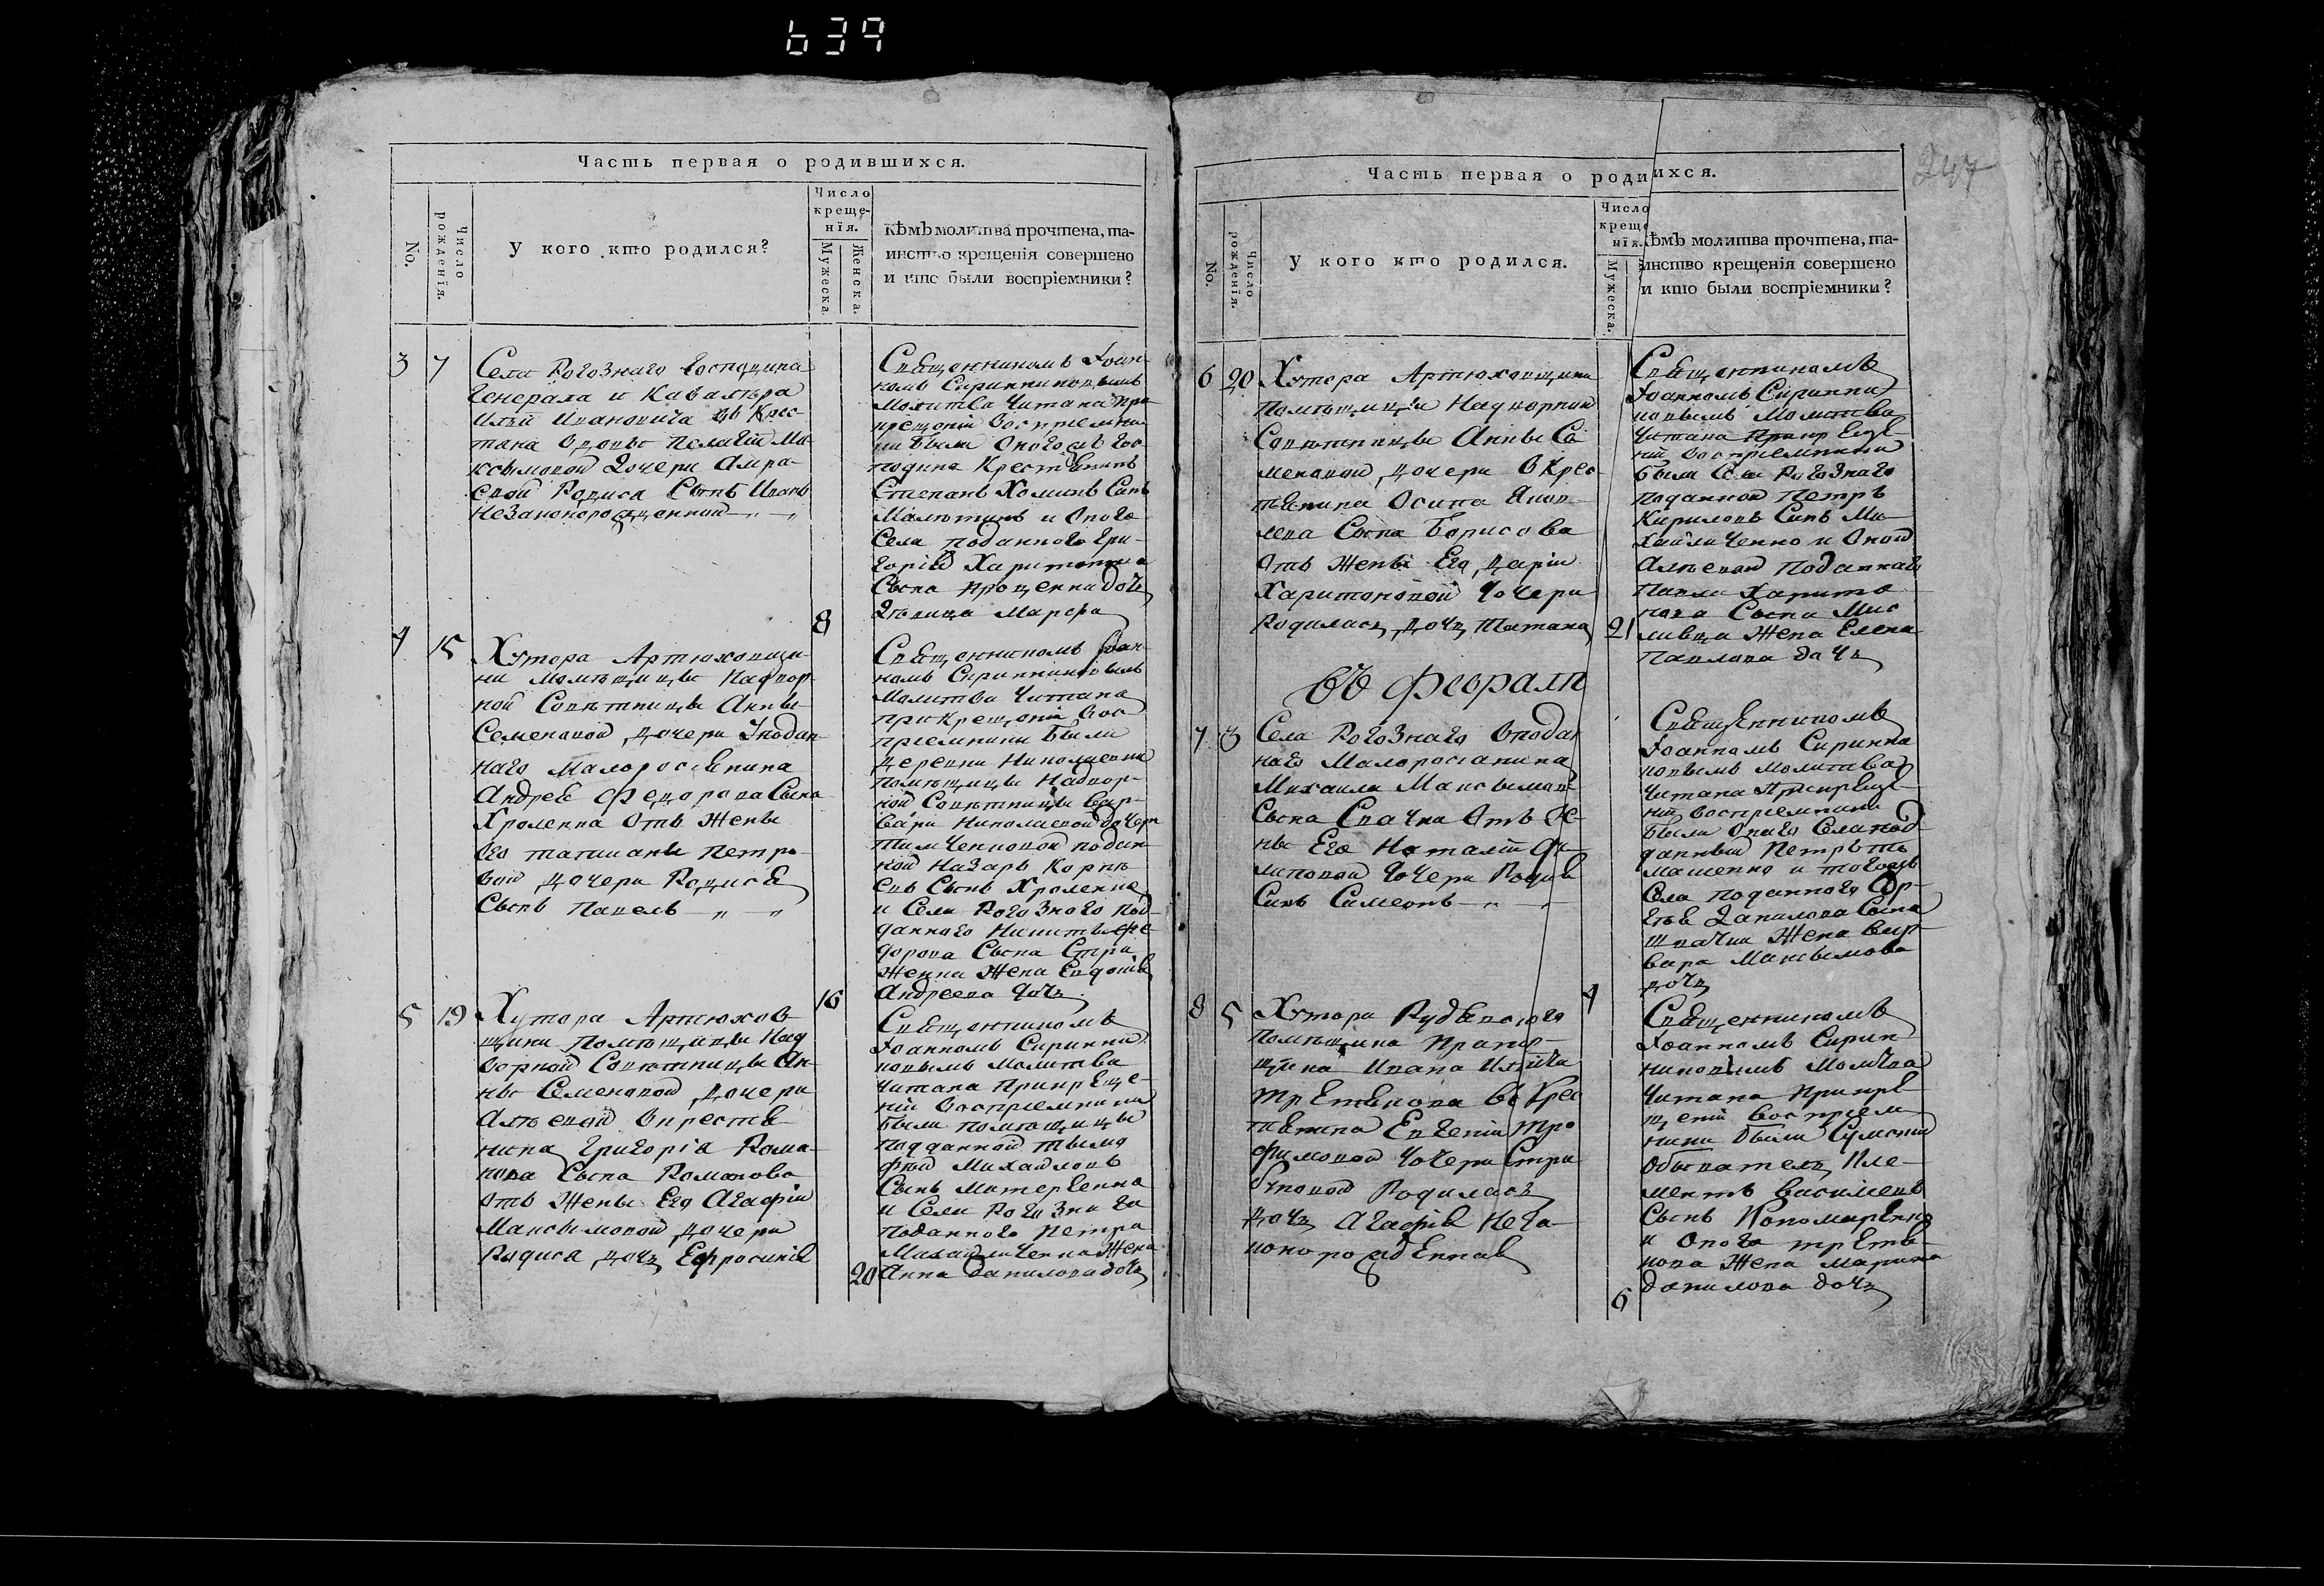 639
Часть первая о родившихся.
No.
Число рожденія.
У кого кто родился?
Число
креще-
нія.
Мужеска.
Женска.
Кѣмъ молитва прочтена, та-
инство крещенія совершено
и кто были воспріемники?
3 7
Села Рогознаго Господина
Генерала и Кавалѣра
Иліи Ивановича
Пелагіи Ма
ксымовой Дочери
Родися Сынъ Иванъ
Незаконорожденной
8
Священникомъ Іоан-
номъ Сиринниковымъ
Молитва Читана При
крещеніи Воспріемни
ки Были Оного Гос
подина Крестьянинъ
Степанъ Хоминъ Сынъ
и Оного
Села Поданного Гри-
горія Харитонова
Сына Проценка дочь
Дѣвица Марфа
4 15
Хутора Артюховщи-
ни Помѣщицы Надвор-
ной Совѣтницы Анны
Семеновой Дочери Уподан-
наго Малоросіянина
Андрея Федорова Сына
Хроленка Отъ Жены
Его Татианы Петро-
вой Дочери Родися
Сынъ Павелъ
16
Священникомъ Іоан-
номъ Сиринниковымъ
Молитва Читана
При Крещеніи Вос-
пріемники Были
Деревни Николаевки
Помѣщицы Надвор-
ной Совѣтницы Вар-
вари Николаевой дочери
подан-
ной Назаръ Корнѣ
евъ Сынъ Хроленко
и Села Рогозного Под-
данного Никиты Фе-
дорова Сына Стри
женка Жена Евдокія
Андреева дочь
5 19
Хутора Артюхов-
щини Помѣщицы Над
ворной Совѣтницы Ан-
ны Семеновой Дочери
Алѣевой Окрестья
нина Григорія Рома-
нова Сына Романова
Отъ Жены Его Агафіи
Максымовой Дочери
Родися Дочь Ефросинія
20
Священникомъ
Іоанномъ Сиринни
ковымъ Молитва
Читана При Креще-
ніи Воспріемники
Были Помѣщицы
Подданной Тымо
фѣй Михайловъ
Сынъ Матерѣенко
и Села Рогознаго
Поданного Петра
Михайличенка Жена
Анна Данилова дочь
247
Часть первая о роди ихся.
No.
Число рожденія.
У кого кто родился.
Число
креще
нія.
Мужеска.
ѣмъ молитва прочтена, та-
инство крещенія совершено
и кто были воспріемники?
6 20
Хутора Артюховщини
Помѣщицы Надворной
Совѣтницы Анны Се
меновой Дочери О Крес
тьянина Осипа Яков
лева Сына Борисова
Отъ Жены Его Даріи
Харитоновой Дочери
Родилась Дочь Татана
21
Священникомъ
Іоанномъ Сиринни
ковымъ Молитва
Читана При Креще-
ніи Воспріемники
Были Села Рогознаго
Поданной Петръ
Кириловъ Сынъ Ми-
хайличенко и Оной
Алѣевой Поданнаго
Павла Харито
нова Сына Мис
ливца Жена Елена
Павлова дочь
въ Февралѣ
7 3
Села Рогознаго Уподан
наго Малоросіанина
Михаила Максымова
Сына Свачка Отъ Же-
ны Его Наталіи Фи-
липовой Дочери Родися
Сынъ Симеонъ
4
Священникомъ
Іоанномъ Сиринни
ковымъ Молитва
Читана При Креще-
ніи Воспріемники
Были Онаго Села под-
данный Петръ То
машенко и тогожъ
Села Поданнаго Сер-
гѣя Данилова Сына
Швачки Жена Вар-
вара Максымова
дочь
8 5
Хутора
Помѣщика Прапор-
щика Ивана Иліича
Третякова
Евгеніи Тро
фимовой Дочери
Родилась
Дочь Агафія Неза-
конорожденная
6
Священникомъ
Іоанномъ Сирин
никовымъ Молитва
Читана При Кре
щеніи Воспріем
ники Были Сумской
Обыватель Кле-
ментъ Василіевъ
Сынъ Пономаренко
и Оного Третья
кова Жена Марина
Данилова дочь